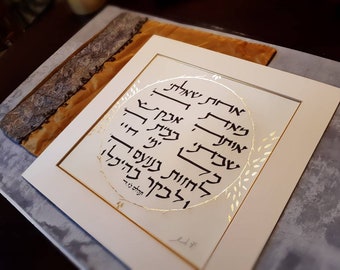 אחת שאלתי
מאת ה'
אותה אבקש
שבתי בבית ה'
כל ימי חיי
לחזות בנועם ה'
ולבקר בהיכלו